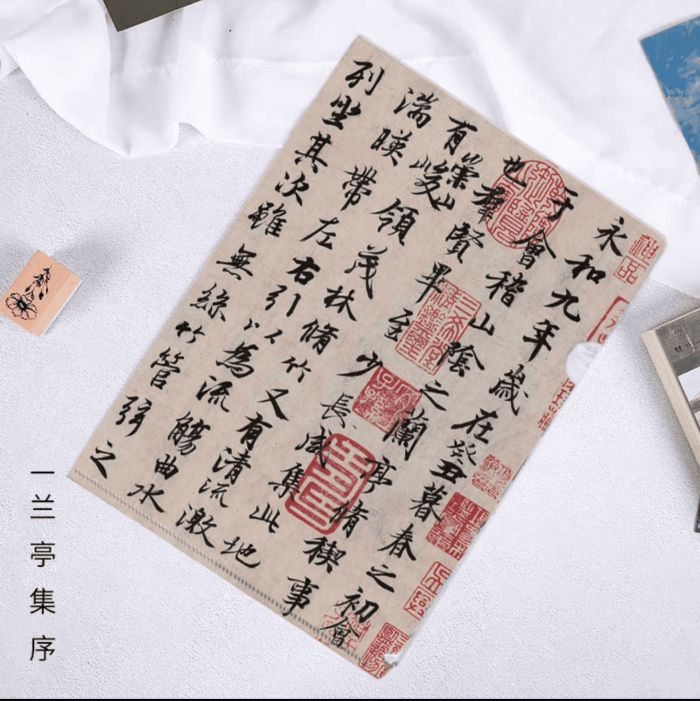 永和九年歲在癸丑暮春之初會
于會稽山陰之蘭亭脩稧事
也羣賢畢至少長咸集此地
有崇山峻領茂林脩竹又有清流激
湍暎帶左右引以為流觴曲水
列坐其次雖無絲竹管弦之
一兰亭集序